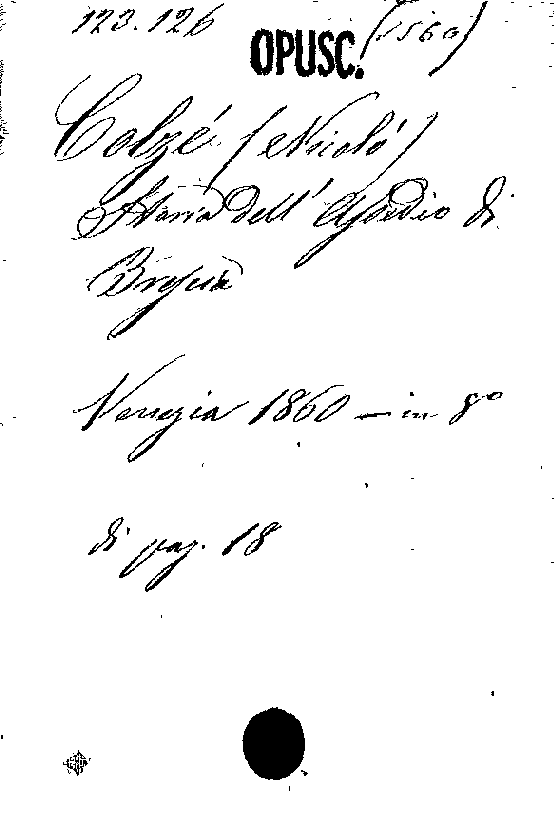 123.126 (1560)
OPUSC.
Colzé (Nicoló)
Storia dell' Assedio di
Brescia
Venezia 1860 — in 8º
di pag. 18